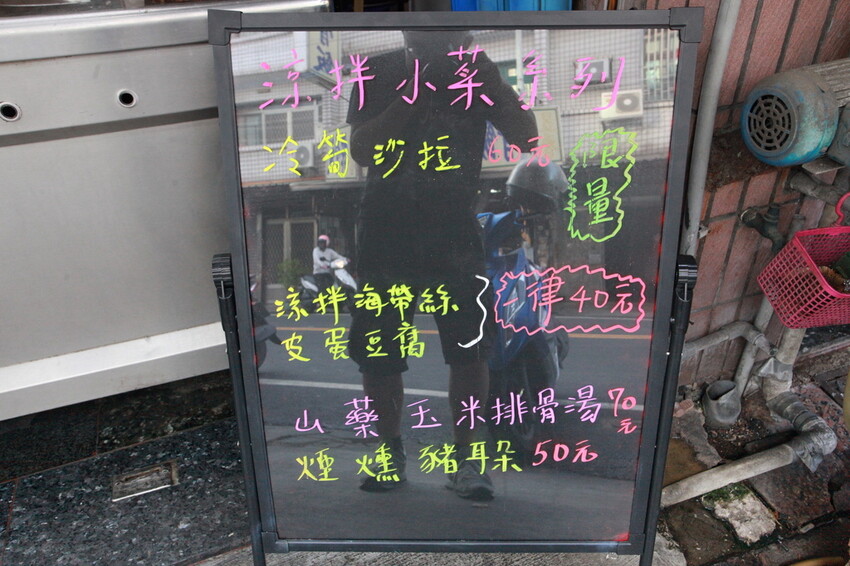 涼拌小菜系列
冷筍沙拉 60元
限量
涼拌海帶絲
皮蛋豆腐
一律40元
山藥玉米排骨湯70元
煙燻豬耳朵50元